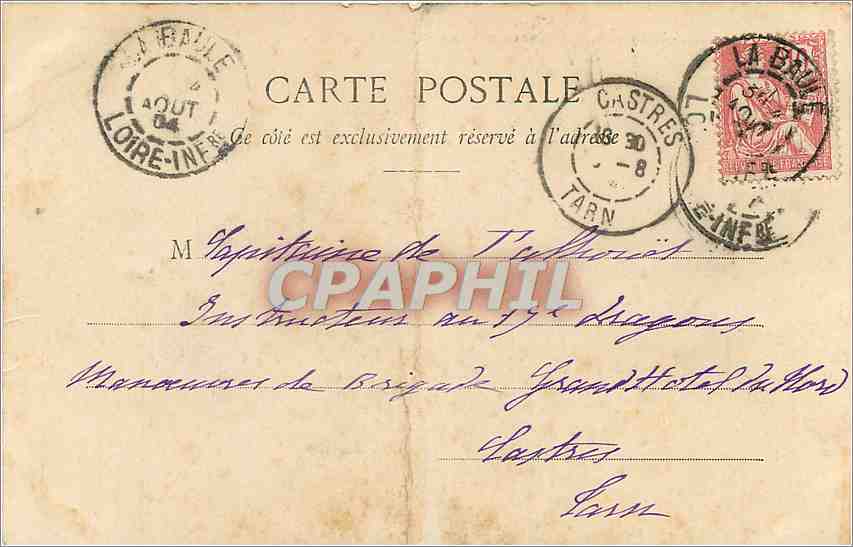 LA BAULE
AOUT
04
LOIRE-INFRE
CARTE POSTALE
Ce côté est exclusivement réservé à l'adresse
CASTRES
30
-8
TARN
LA BAULE
E-INFRE
M Capitaine de Talhouët
CPAPHIL
Instructeur au 17e Dragons
Manoeuvres de Brigade Grand Hotel du Nord
Castres
Tarn